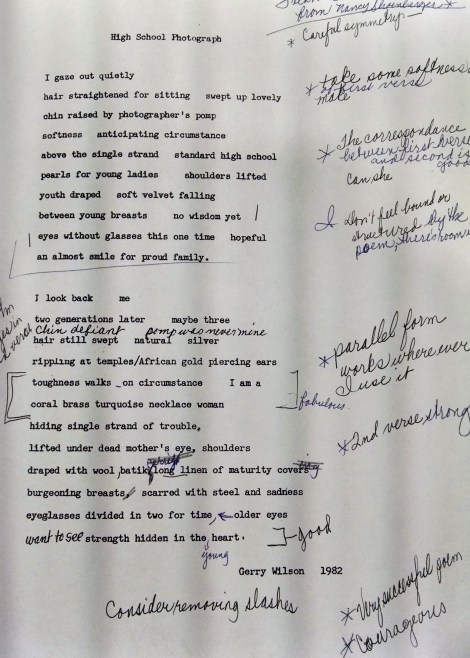 from Nancy
* Careful symmetry
High School Photograph
I gaze out quietly
hair straightened for sitting swept up lovely
chin raised by photographer's pomp
softness anticipating circumstance
above the single strand standard high school
pearls for young ladies shoulders lifted
youth draped soft velvet falling
between young breasts no wisdom yet
eyes without glasses this one time hopeful
an almost smile for proud family.
* take some softness
of first verse
make
* The correspondance
between first verse
and second is
good
can she
I don't feel bound or
structured by the
poem, there's room
I look back me
two generations later maybe three
Chin defiant pomp was never mine
hair still swept natural silver
rippling at temples/African gold piercing ears
toughness walks on circumstance I am a
coral brass turquoise necklace woman
fabulous
hiding single strand of trouble,
lifted under dead mother's eye, shoulders
draped with wool, batik, long linen of maturity covers
burgeoning breasts, scarred with steel and sadness
eyeglasses divided in two for time, older eyes
want to see strength hidden in the heart.
good
young
* parallel form
works where ever
I use it
* 2nd verse, strong
Gerry Wilson 1982
Consider removing slashes
* Very successful poem
* Courageous